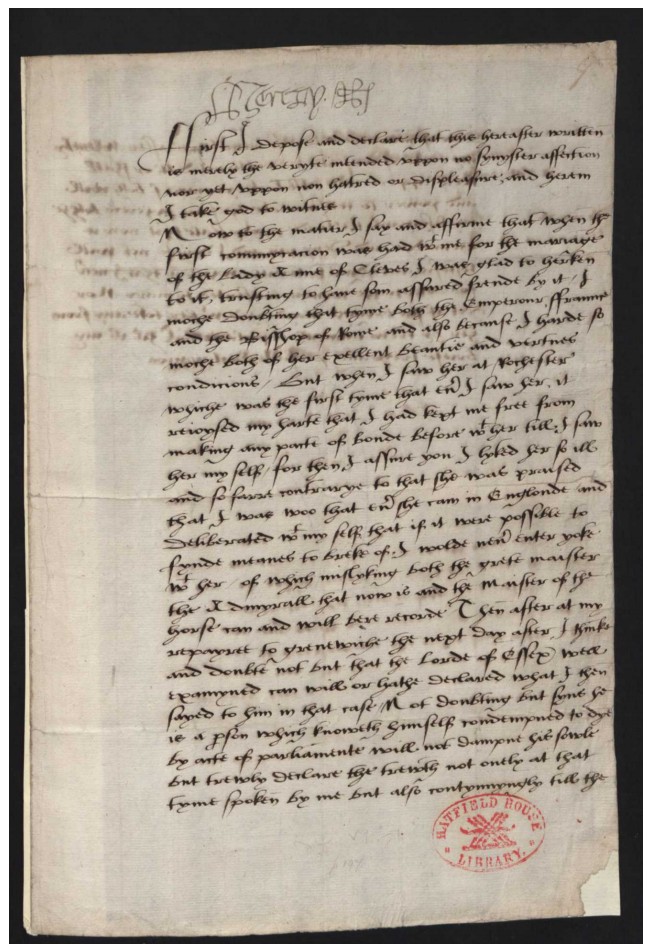 First I depose and declare that this hereafter written
is merely the veryte intended uppon no synyster affection
nor yet uppon non hatred or displeasure and herein
I take god to witnes
Now to the matier I say and affirme that when the
first comunycacion was had wt me for the mariage
of the Lady Anne of Cleves I was glad to herken
to it, trusting to have som assured frende by it / I
moche doubting that tyme both the Emperour, ffraunce
and the Bisshop of Rome and also because I harde so
moche both of her exellent beautie and vertues
condicions / But when I saw her at Rochester
whiche was the first tyme that ev I saw her, it
rejoysed my harte that I had kept me free from
making any pacte of bonde before wt her till I saw
her my self / for then I assure you I lyked her so ill
and so farre contrarye to that she was praised
that I was woo that ev she cam in Englonde and
deliberated wt my self that if it were possible to
fynde meanes to breke of, I wolde nev enter yoke
wt her / of which mislyking both the grete maister
the Admyrall that now is and the Maister of the
horse can and will bere recorde Then after at my
repayree to grenewiche the next day after I thinke
and doubte not but that the Lorde of Essex well
examyned can will or hathe declared what I then
sayed to him in that case Not doubting but syns he
is a pson which knoweth himself condempned to dye
by acte of parliamente will not dampne his sowle
but trewly declare the trewth not onely at that
tyme spoken by me but also contynuyngly till the
HATFIELD HOUSE
LIBRARY.